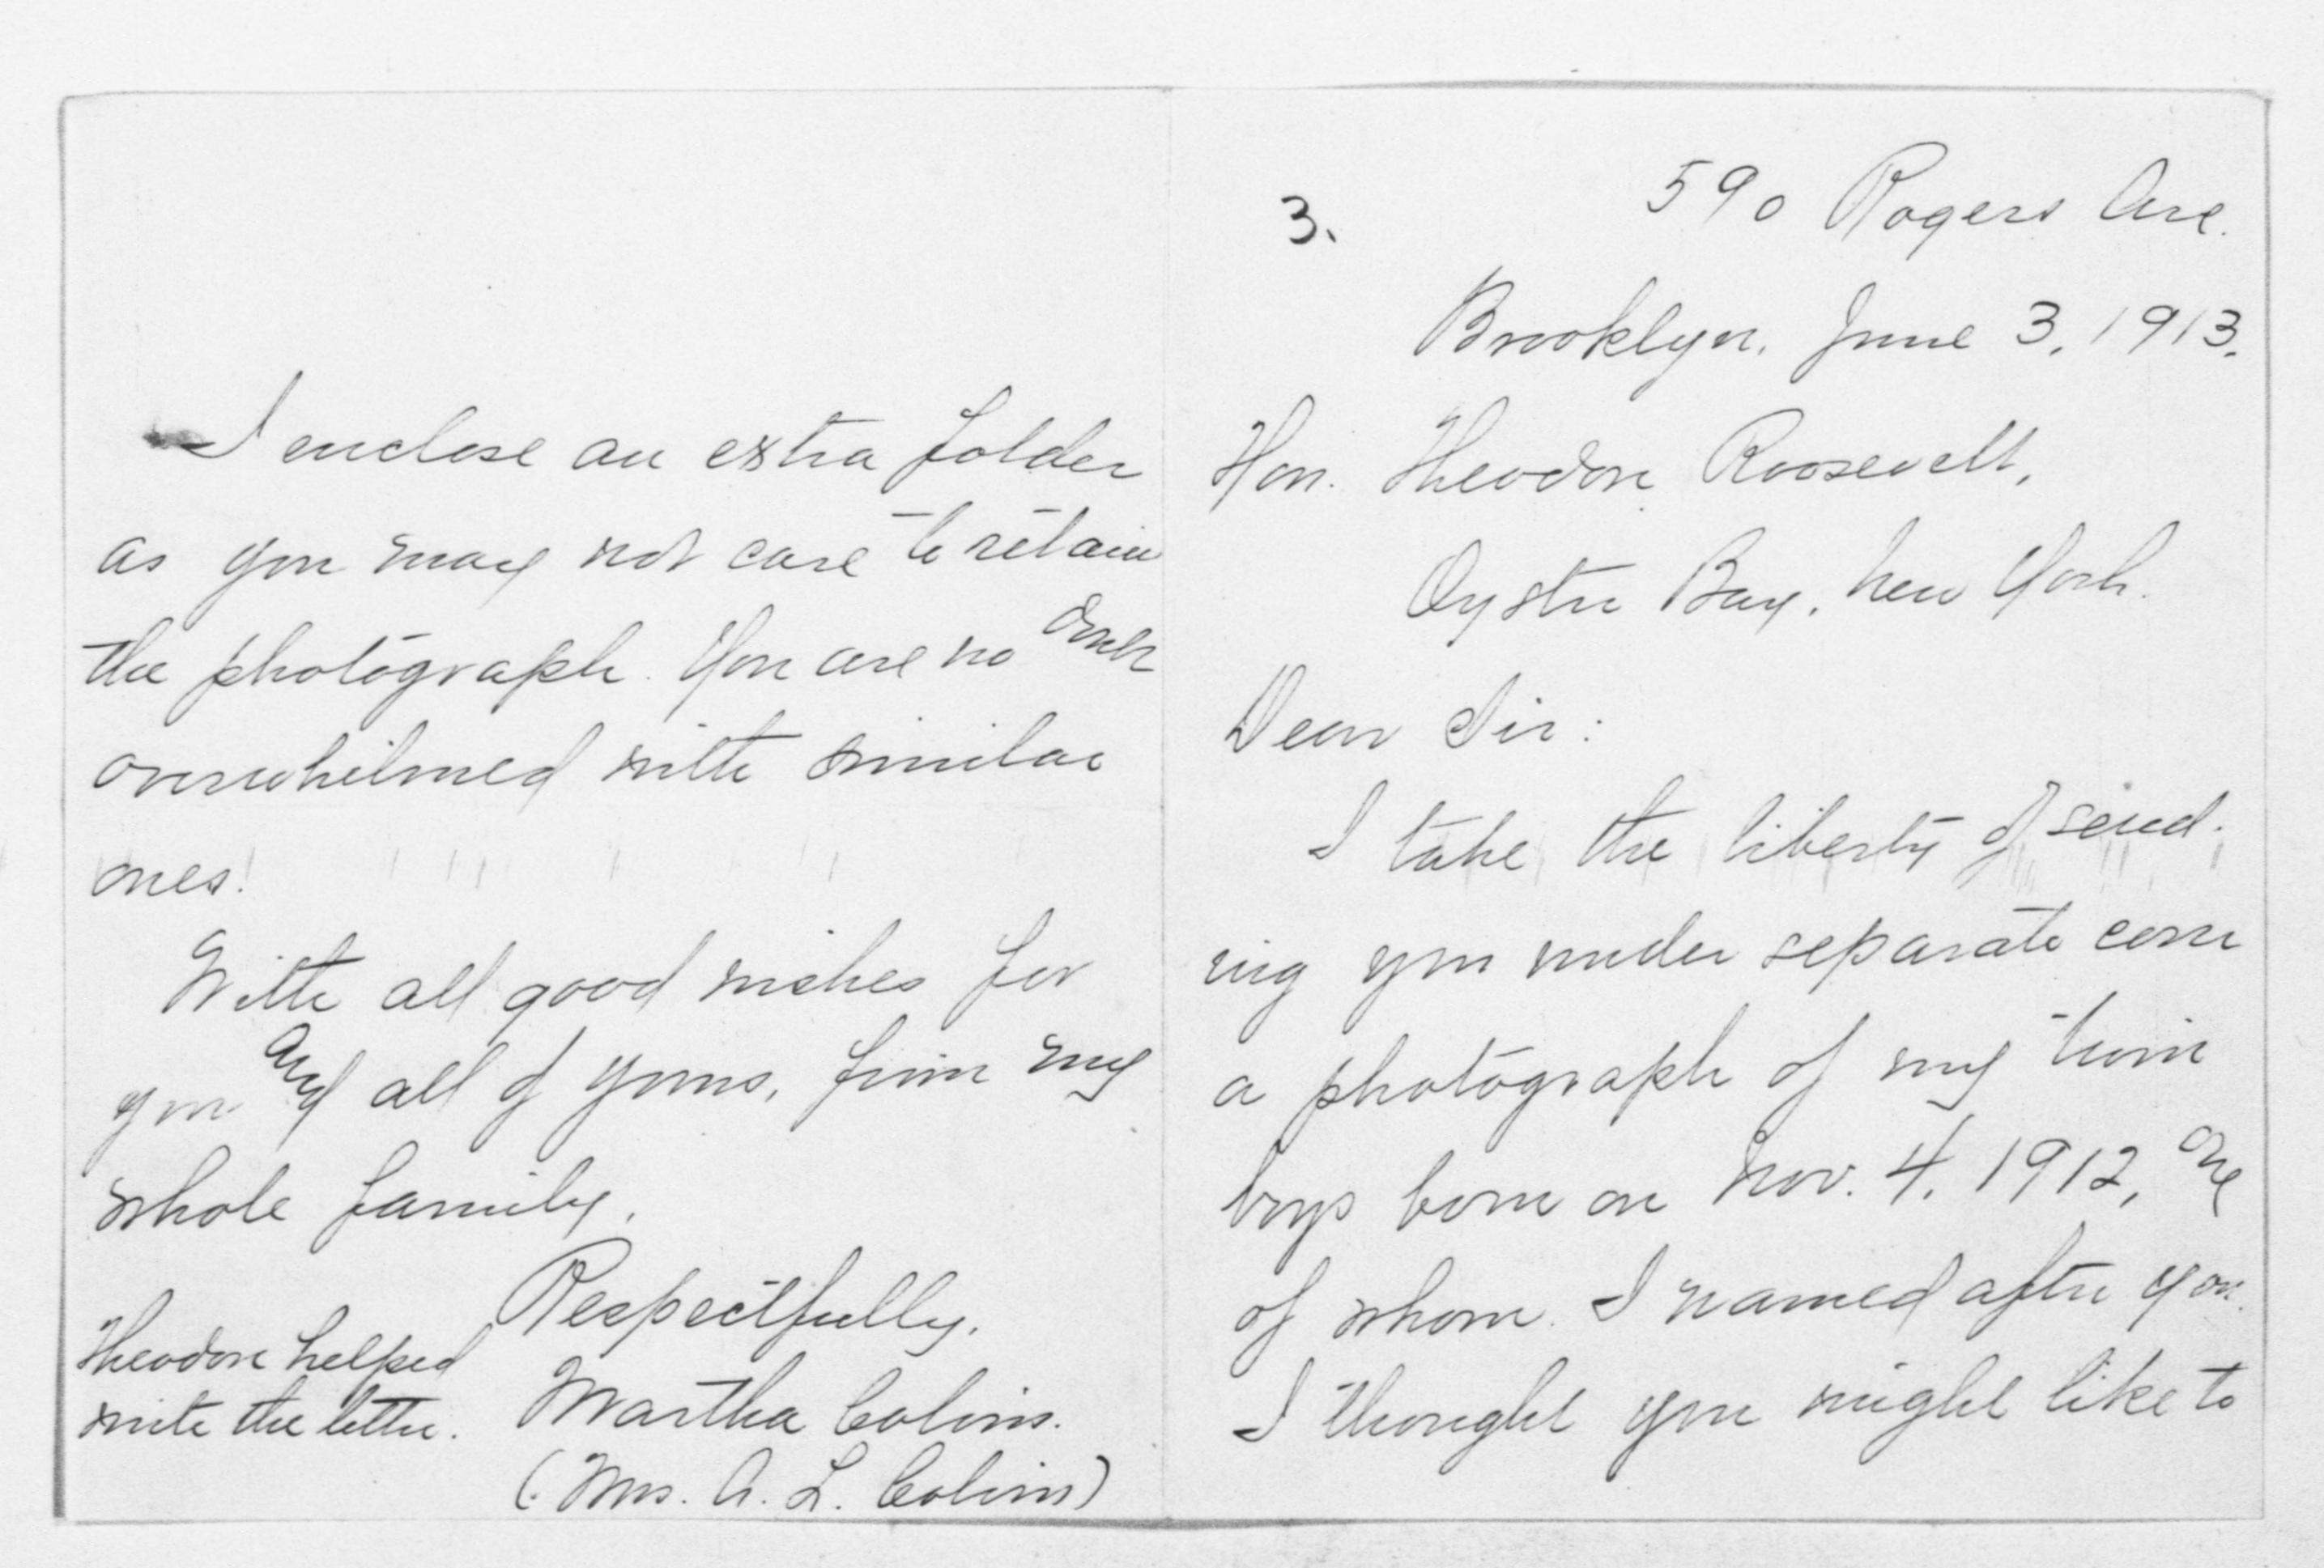 3.
590 Rogers Ave.
Brooklyn, June 3, 1913.
Hon. Theodore Roosevelt,
Oyster Bay, New York.
Dear Sir:
I take the liberty of send-
ing you under separate cover
a photograph of my twin
boys born on Nov. 4, 1912, one
of whom I named after you.
I thought you might like to
I enclose an extra folder
as you may not care to retain
the photograph. You are no doubt
overwhelmed with similar
ones!
With all good wishes for
you and all of yours, from my
whole family,
Respectfully,
Martha Colvin.
(Mrs. A. L. Colvin)
Theodore helped
write the letter.